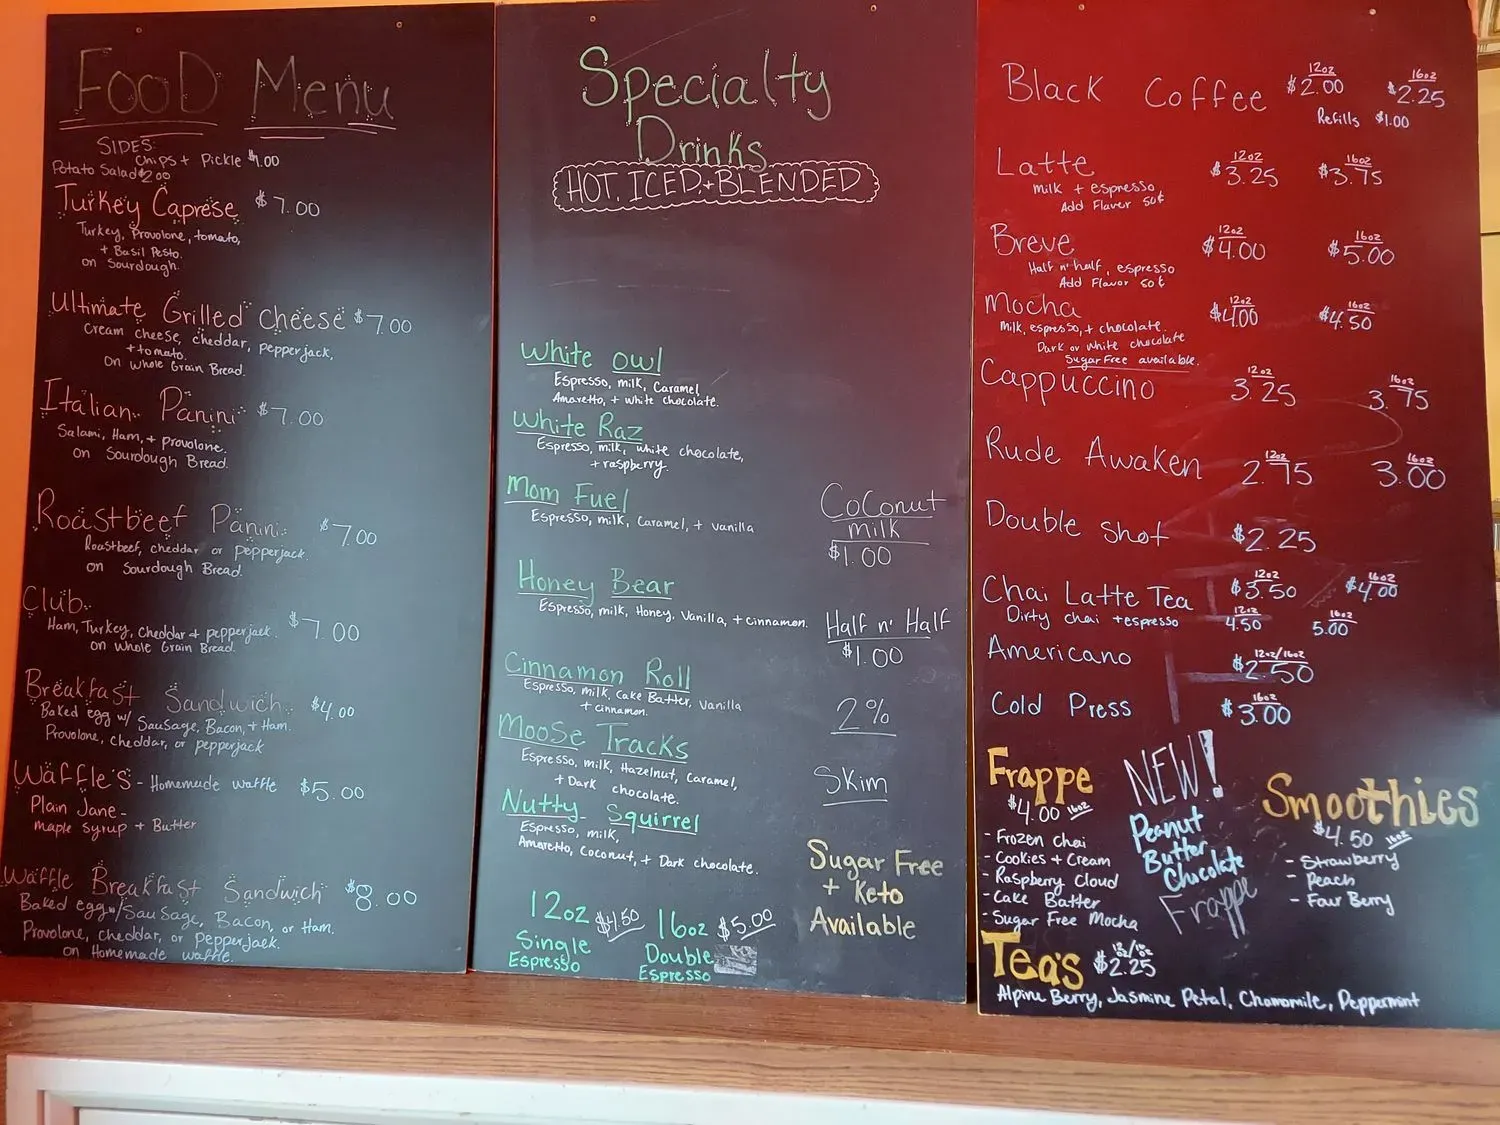 Food Menu
SIDES:
Chips + Pickle $1.00
Potato Salad $2.00
Turkey Caprese $7.00
Turkey, Provolone, tomato,
+ Basil Pesto.
on Sourdough.
Ultimate Grilled Cheese $7.00
Cream cheese, cheddar, pepperjack,
+ tomato.
on Whole Grain Bread.
Italian Panini $7.00
Salami, Ham, + provolone.
on Sourdough Bread.
Roastbeef Panini $7.00
Roastbeef, cheddar or pepperjack.
on Sourdough Bread.
Club $7.00
Ham, Turkey, cheddar + pepperjack.
on Whole Grain Bread.
Breakfast Sandwich $4.00
Baked egg w/ Sausage, Bacon, + Ham.
Provolone, cheddar, or pepperjack
Waffle's - Homemade waffle $5.00
Plain Jane -
maple syrup + Butter
Waffle Breakfast Sandwich $8.00
Baked egg w/ Sausage, Bacon, or Ham.
Provolone, cheddar, or Pepperjack.
on Homemade waffle.
Specialty
Drinks
HOT, ICED + BLENDED
White Owl
Espresso, milk, Caramel,
Amaretto, + white chocolate.
White Raz
Espresso, milk, white chocolate,
+ raspberry.
Mom Fuel
Espresso, milk, Caramel, + vanilla
Honey Bear
Espresso, milk, Honey, Vanilla, + cinnamon.
Cinnamon Roll
Espresso, milk, Cake Batter, Vanilla
+ cinnamon.
Moose Tracks
Espresso, milk, Hazelnut, Caramel,
+ Dark chocolate.
Nutty Squirrel
Espresso, milk,
Amaretto, Coconut, + Dark chocolate.
12oz $4.50 16oz $5.00
Single Double
Espresso Espresso
Coconut
milk
$1.00
Half n' Half
$1.00
2%
Skim
Sugar Free
+ Keto
Available
Black Coffee 12oz $2.00 16oz $2.25
Refills $1.00
Latte 12oz $3.25 16oz $3.75
milk + espresso
Add Flavor 50¢
Breve 12oz $4.00 16oz $5.00
Half n' half, espresso
Add Flavor 50¢
Mocha 12oz $4.00 16oz $4.50
Milk, espresso, + chocolate.
Dark or white chocolate
Sugar Free available.
Cappuccino 12oz 3.25 16oz 3.75
Rude Awaken 12oz 2.75 16oz 3.00
Double Shot $2.25
Chai Latte Tea 12oz $3.50 16oz $4.00
Dirty chai + espresso 12oz 4.50 16oz 5.00
Americano 12oz/16oz $2.50
Cold Press 16oz $3.00
Frappe
$4.00 16oz
- Frozen chai
- Cookies + Cream
- Raspberry Cloud
- Cake Batter
- Sugar Free Mocha
NEW!
Peanut
Butter
Chocolate
Frappe
Smoothies
$4.50 16oz
- Strawberry
- Peach
- Four Berry
Tea's 12oz/16oz $2.25
Alpine Berry, Jasmine Petal, Chamomile, Peppermint